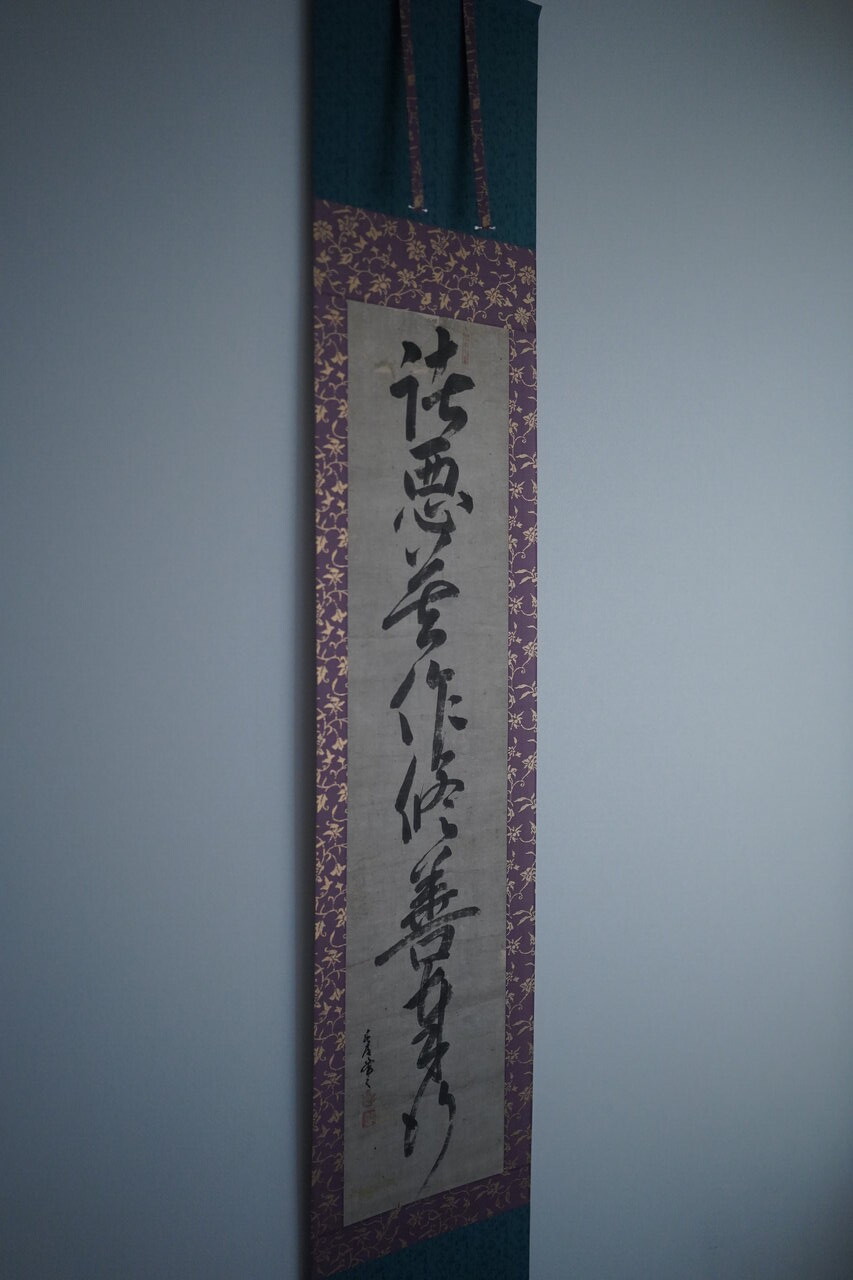 諸悪莫作修善奉行